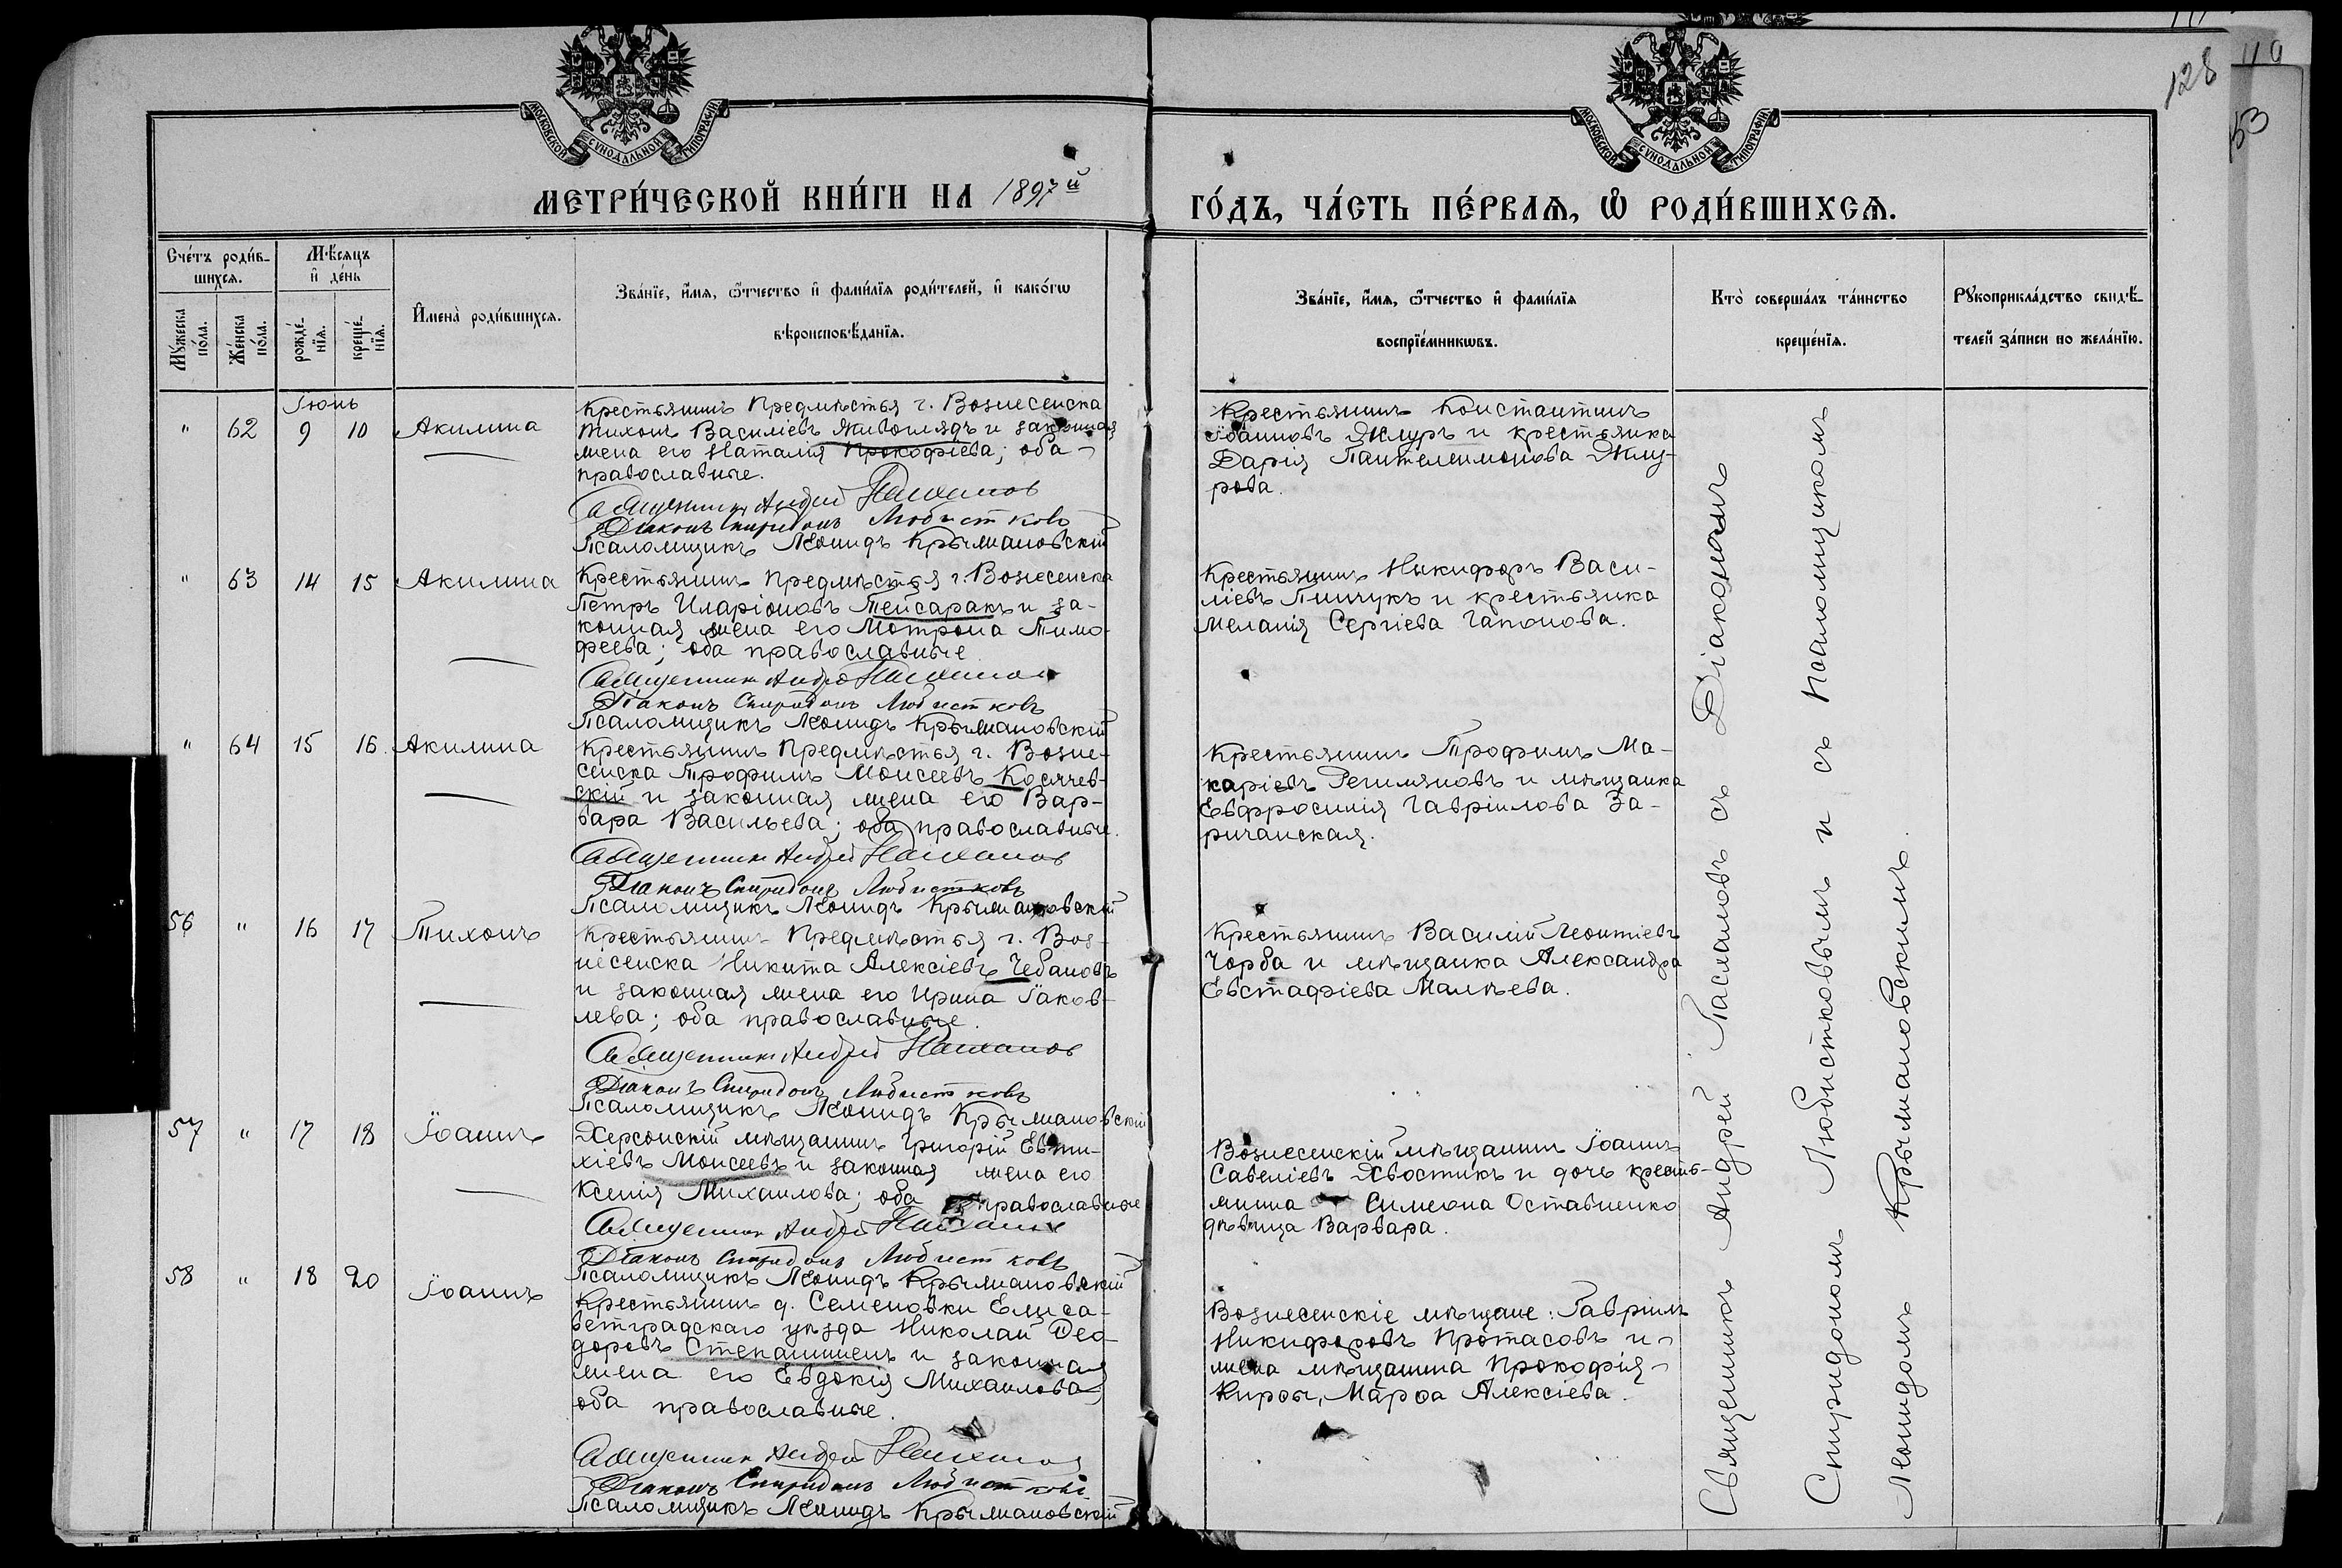 128
119
53
МОСКОВСКОЙ СУНОДАЛЬНОЙ ТИПОГРАФІИ
МОСКОВСКОЙ СУНОДАЛЬНОЙ ТИПОГРАФІИ
МЕТРИ́ЧЕСКОЙ КНИ́ГИ НА 1897й
ГО́ДЪ, ЧА́СТЬ ПЕ́РВАѦ, Ѽ РОДИ́ВШИХСѦ.
Сче́тъ роди́в-
шихсѧ.
Мꙋ́жеска
по́ла.
Же́нска
по́ла.
Мѣ́сѧцъ
и҆ де́нь
рожде́-
нїѧ.
креще́-
нїѧ.
И҆мена̀ роди́вшихсѧ.
Зва́нїе, и҆́мѧ, ѻ҆́тчество и҆ фами́лїѧ роди́телей, и҆ како́гѡ
вѣроисповѣ́данїѧ.
Зва́нїе, и҆́мѧ, ѻ҆́тчество и҆ фами́лїѧ
воспрїе́мникѡвъ.
Кто̀ соверша́лъ та́инство
креще́нїѧ.
Рꙋкоприкла́дство свидѣ́-
телей за́писи по жела́нїю.
Іюнь
" 62 9 10 Акилина
Крестьянинъ Предмѣстья г. Вознесенска
Тихонъ Василіевъ Живоглядъ и законная
жена его Наталія Прокофіева; оба
православные.
Священникъ Андрей Пасхалов
Діаконъ Спиридонъ Любистковъ
Псаломщикъ Леонидъ Крыжановскій
Крестьянинъ Константинъ
Іоанновъ Жмуръ и крестьянка
Дарія Пантелеимонова Жму-
рова.
" 63 14 15 Акилина
Крестьянинъ Предмѣстья г. Вознесенска
Петръ Иларіоновъ Тейсаракъ и за-
конная жена его Мотрона Тимо-
феева; оба православные
Священникъ Андрей Пасхалов
Діаконъ Спиридонъ Любистковъ
Псаломщикъ Леонидъ Крыжановскій
Крестьянинъ Никифоръ Васи-
ліевъ Пинчукъ и крестьянка
Меланія Сергіева Гапонова.
" 64 15 16. Акилина
Крестьянинъ Предмѣстья г. Возне-
сенска Трофимъ Моисеевъ Косячев-
скій и законная жена его Вар-
вара Васильева; оба православные.
Священникъ Андрей Пасхалов
Діаконъ Спиридонъ Любистковъ
Псаломщикъ Леонидъ Крыжановскій
Крестьянинъ Трофимъ Ма-
каріевъ Регимяновъ и мѣщанка
Евфросинія Гавріилова За-
ричанская.
56 " 16 17 Тихонъ
Крестьянинъ Предмѣстья г. Воз-
несенска Никита Алексіевъ Чебановъ
и законная жена его Ирина Іаков-
лева; оба православные.
Священникъ Андрей Пасхалов
Діаконъ Спиридонъ Любистковъ
Псаломщикъ Леонидъ Крыжановскій
Крестьянинъ Василій Леонтіевъ
Чорба и мѣщанка Александра
Евстафіева Малѣева.
57 " 17 18 Іоаннъ
Херсонскій мѣщанинъ Григорій Евти-
хіевъ Моисеевъ и законная жена его
Ксенія Михаилова; оба православные
Священникъ Андрей Пасхалов
Діаконъ Спиридонъ Любистковъ
Псаломщикъ Леонидъ Крыжановскій
Вознесенскій мѣщанинъ Іоаннъ
Савеліевъ Хвостикъ и дочь кресть-
янина Симеона Оставненко
дѣвица Варвара.
58 " 18 20 Іоаннъ
Крестьянинъ д. Семеновки Елиса-
ветградскаго уѣзда Николай Ѳео-
доровъ Степанишенъ и законная
жена его Евдокія Михаилова
оба православные.
Священникъ Андрей Пасхалов
Діаконъ Спиридонъ Любистковъ
Псаломщикъ Леонидъ Крыжановскій
Вознесенскіе мѣщане: Гавріилъ
Никифоровъ Протасовъ и
жена мѣщанина Прокофія
Киры, Марѳа Алексіева.
Священникъ Андрей Пасхаловъ съ Діакономъ
Спиридономъ Любистковымъ и съ Псаломщикомъ
Леонидомъ Крыжановскимъ.